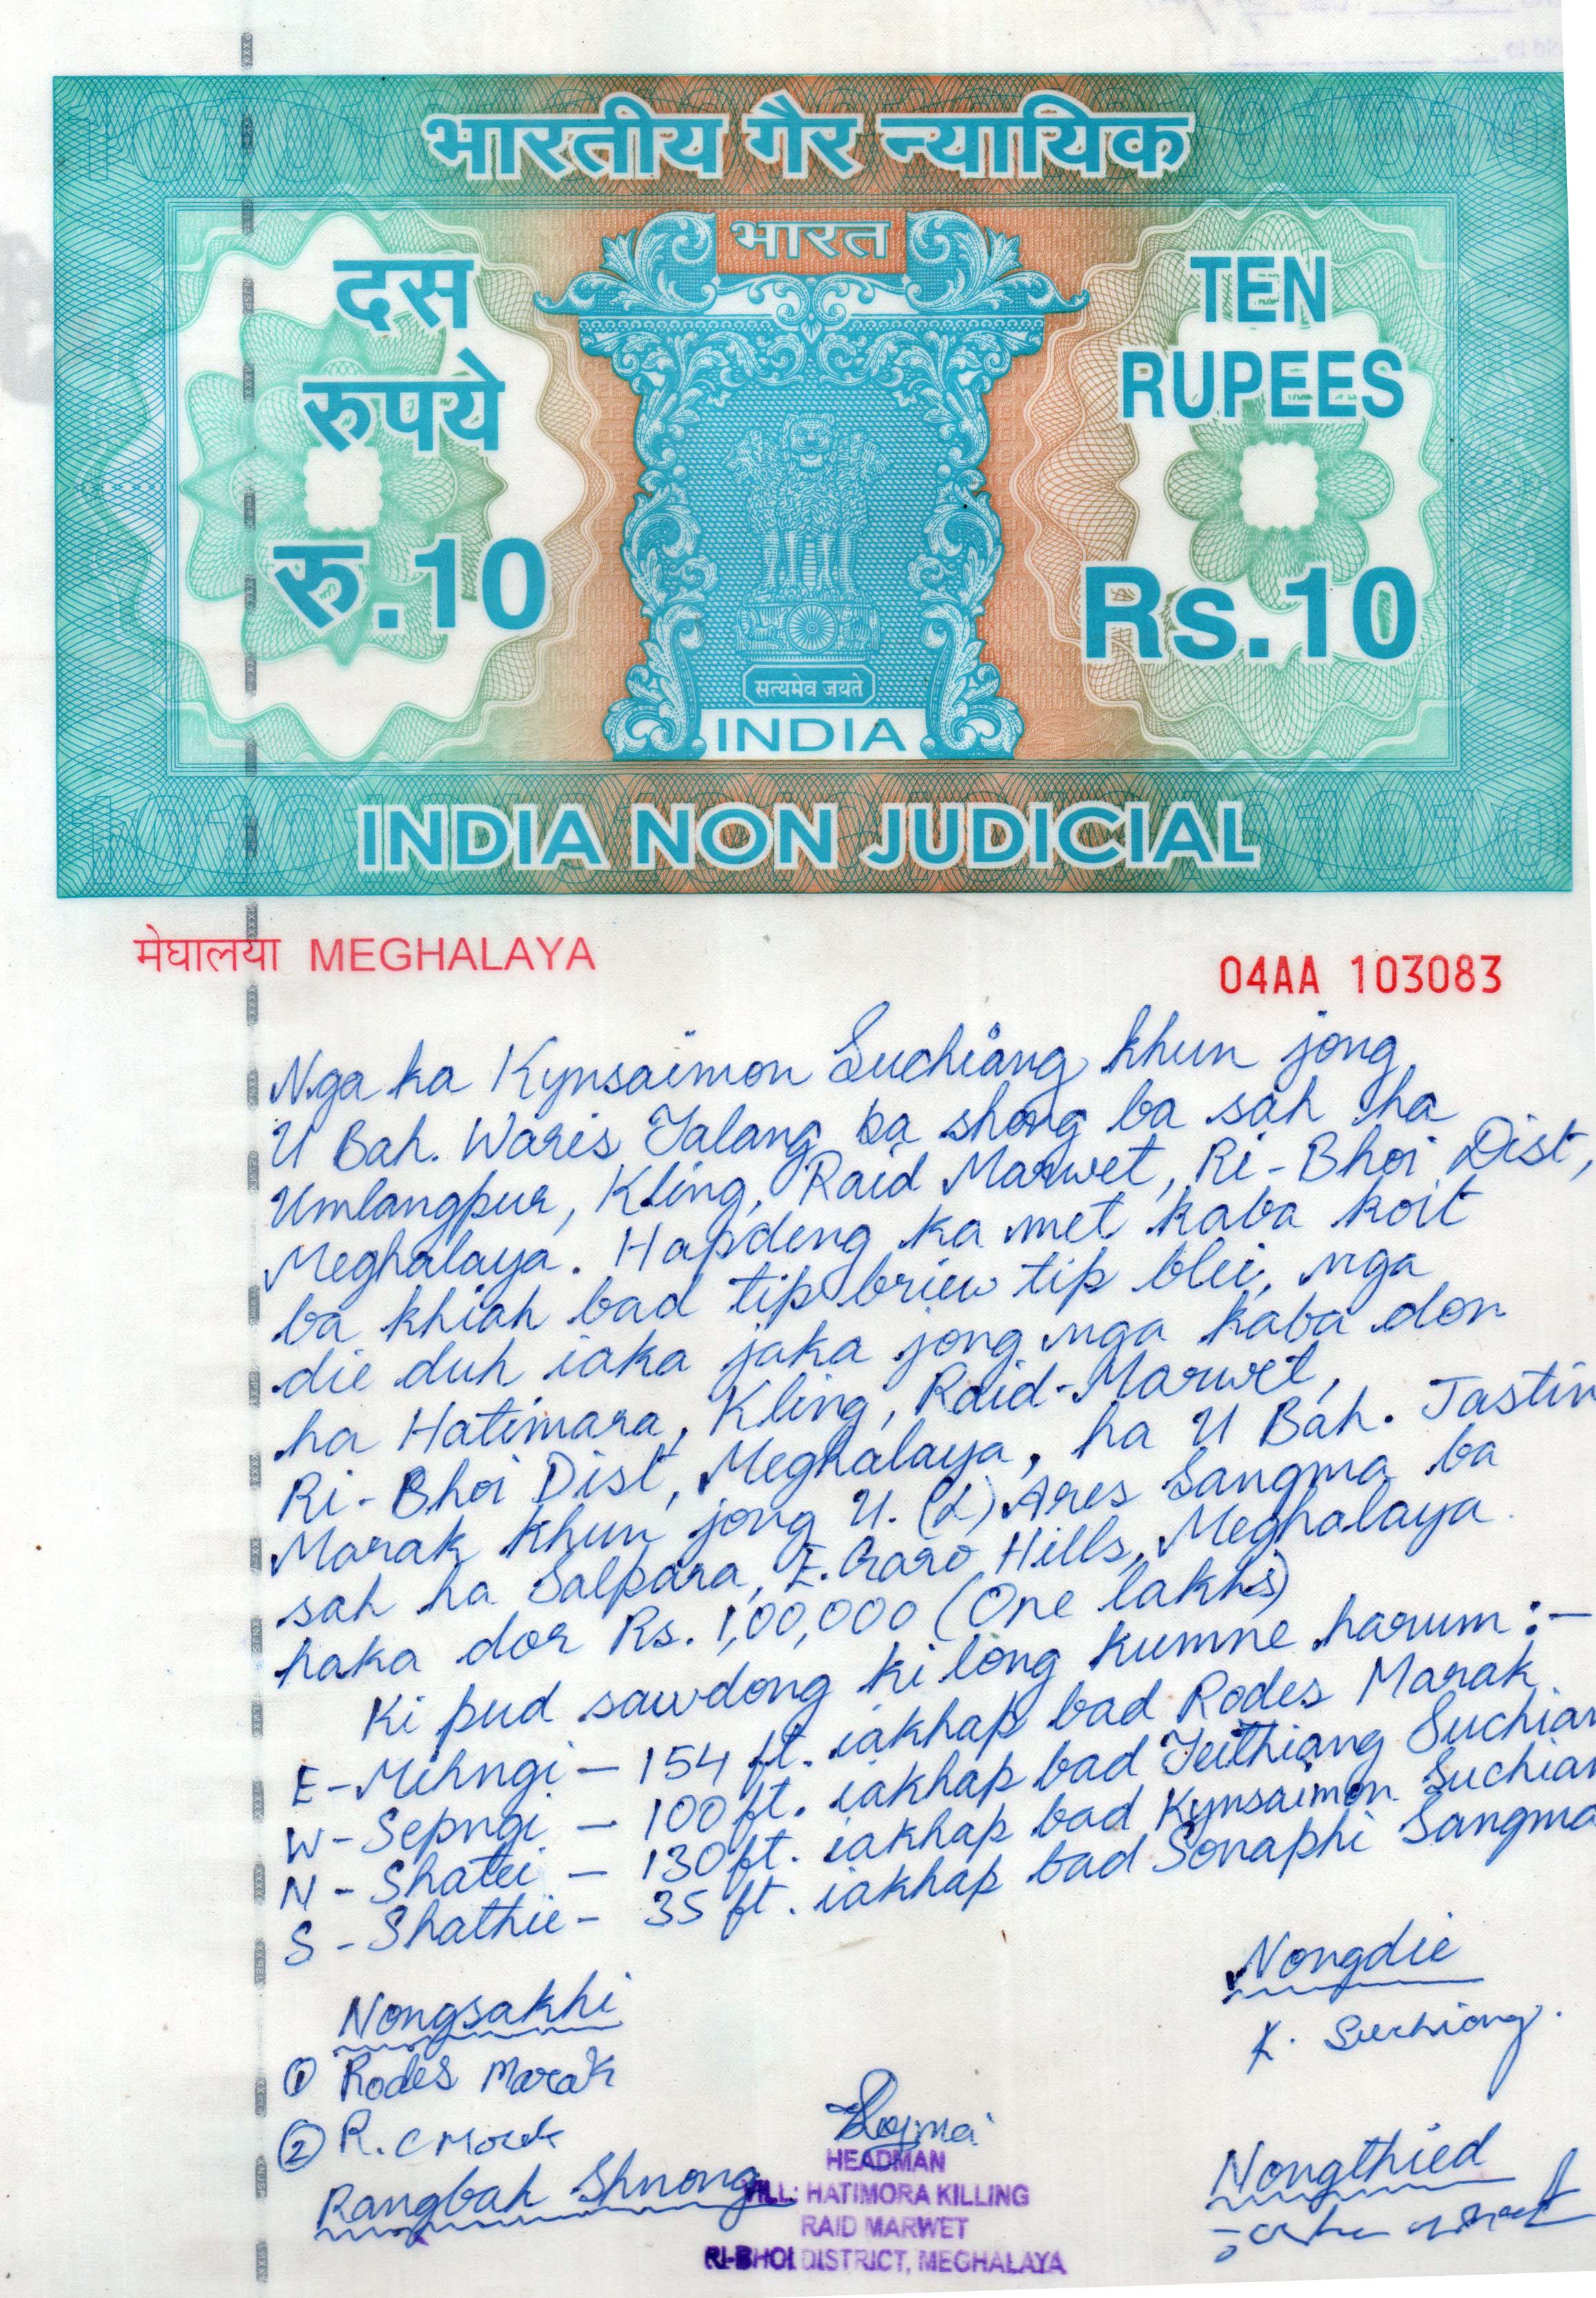 भारतीय गैर न्यायिक
भारत
दस
रुपये
रु.10
TEN
RUPEES
Rs.10
सत्यमेव जयते
INDIA
INDIA NON JUDICIAL
मेघालया MEGHALAYA
04AA 103083
Nga ka Kynsaimon Suchiang khun jong
U Bah. Waris Jalang ba shong ba sah ha
Umlangpur, Kling, Raid Marwet, Ri-Bhoi Dist,
Meghalaya. Hapdeng ka met kaba koit
ba khiah bad tip briew tip blei, nga
die duh iaka jaka jong nga kaba don
ha Hatimara, Kling, Raid-Marwet,
Ri-Bhoi Dist, Meghalaya, ha U Bah. Jastin
Marak khun jong U. (L) Ares Sangma ba
sah ha Salpara, E. Garo Hills, Meghalaya.
haka dor Rs. 1,00,000 (One lakhs)
Ki pud sawdong ki long kumne harum :-
E - Mihngi - 154 ft. iakhap bad Rodes Marak
W - Sepngi - 100 ft. iakhap bad Jeithiang Suchian
N - Shatei - 130 ft. iakhap bad Kynsaimon Suchian
S - Shathie - 35 ft. iakhap bad Sonaphi Sangma
Nongdie
K. Suchiang.
Nongsakhi
① Rodes Marak
② R. C
Rangbah Shnong
HEADMAN
VILL: HATIMORA KILLING
RAID MARWET
RI-BHOI DISTRICT, MEGHALAYA
Nongthied